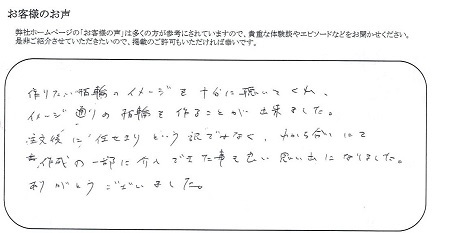 お客様のお声
弊社ホームページの「お客様の声」は多くの方が参考にされていますので、貴重な体験談やエピソードなどをお聞かせください。
是非ご紹介させていただきたいので、掲載のご許可もいただければ幸いです。
作りたい指輪のイメージを十分に聴いてくれ、
イメージ通りの指輪を作ることが出来ました。
注文後に任せきりという訳でなく、
作成の一部に介入できた事も良い思い出になりました。
ありがとうございました。